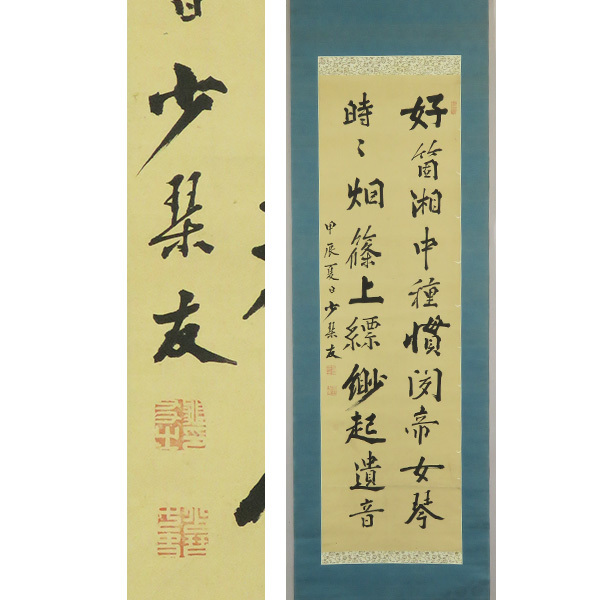 少琹友
好箇湘中種慣閲帝女琴
時〻烟篠上縹緲起遺音
甲辰夏日少琹友